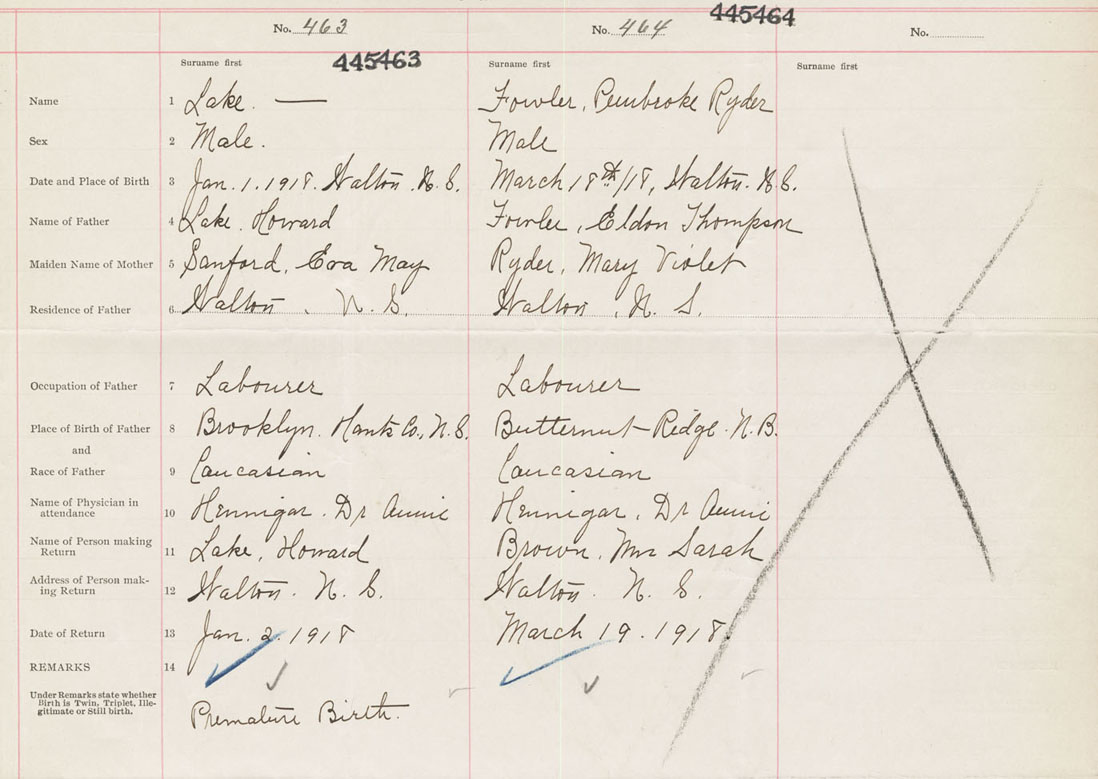 No. 463 No. 464 445464 No.
Surname first 445463 Surname first Surname first
Name 1 Lake. — Fowler, Pembroke Ryder
Sex 2 Male. Male
Date and Place of Birth 3 Jan. 1. 1918. Walton. N. S. March 18th/18, Walton. N. S.
Name of Father 4 Lake. Howard Fowler, Eldon Thompson
Maiden Name of Mother 5 Sanford, Eva May Ryder, Mary Violet
Residence of Father 6 Walton, N. S. Walton, N. S.
Occupation of Father 7 Labourer Labourer
Place of Birth of Father 8 Brooklyn. Hants Co., N. S. Butternut Ridge. N. B.
and
Race of Father 9 Caucasian Caucasian
Name of Physician in
attendance 10 Hennigar. Dr Annie Hennigar, Dr Annie
Name of Person making
Return 11 Lake, Howard Brown, Mrs Sarah
Address of Person mak-
ing Return 12 Walton. N. S. Walton. N. S.
Date of Return 13 Jan. 2. 1918 March 19. 1918.
REMARKS 14
Under Remarks state whether
Birth is Twin, Triplet, Ille-
gitimate or Still birth.
Premature Birth.